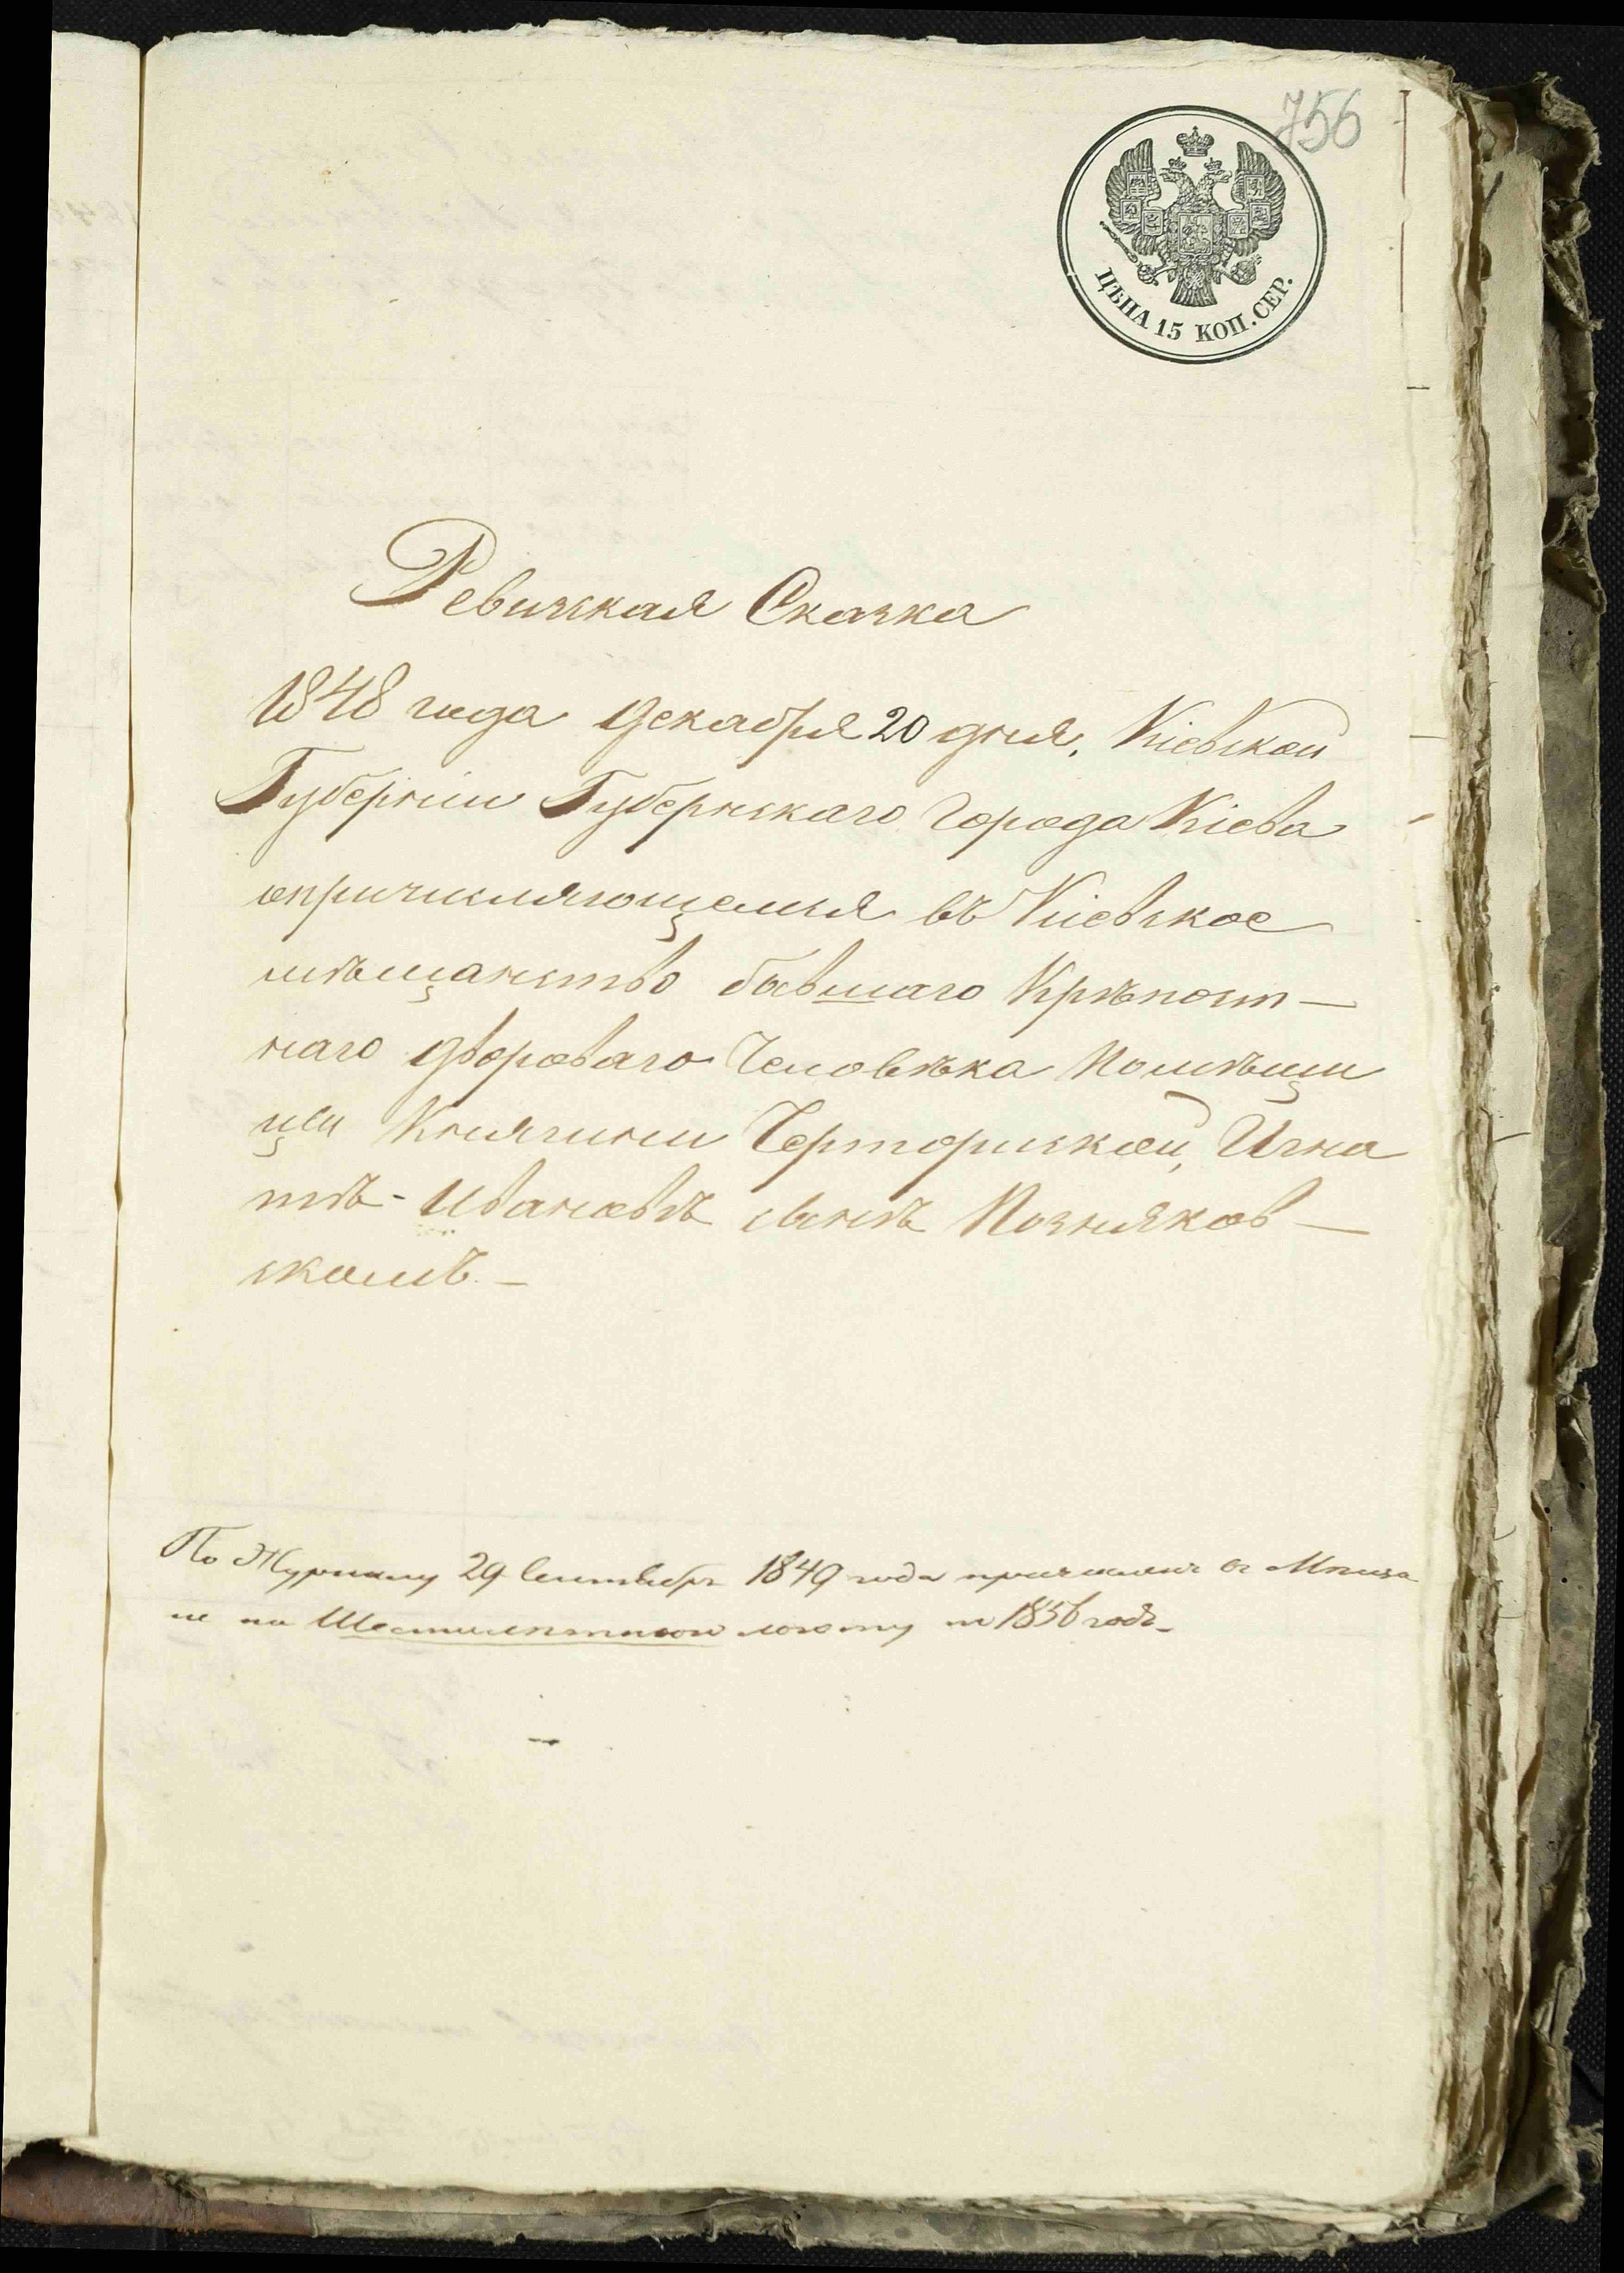 756
ЦѢНА 15 КОП. СЕР.
Ревизская Сказка
1848 года Декабря 20 дня, Кіевской
Губерніи Губернскаго Города Кіева
опричисляющемся въ Кіевское
мѣщанство бывшаго Крѣпост-
наго двороваго Человѣка Помѣщи
цы Княгини Черторискои, Игна
тѣ-Ивановѣ сынѣ Позняков-
скомъ.-
По Журналу 29 Сентября 1849 года причисленъ въ Мѣща
не на Шестилетнюю льготу по 1856 годъ.